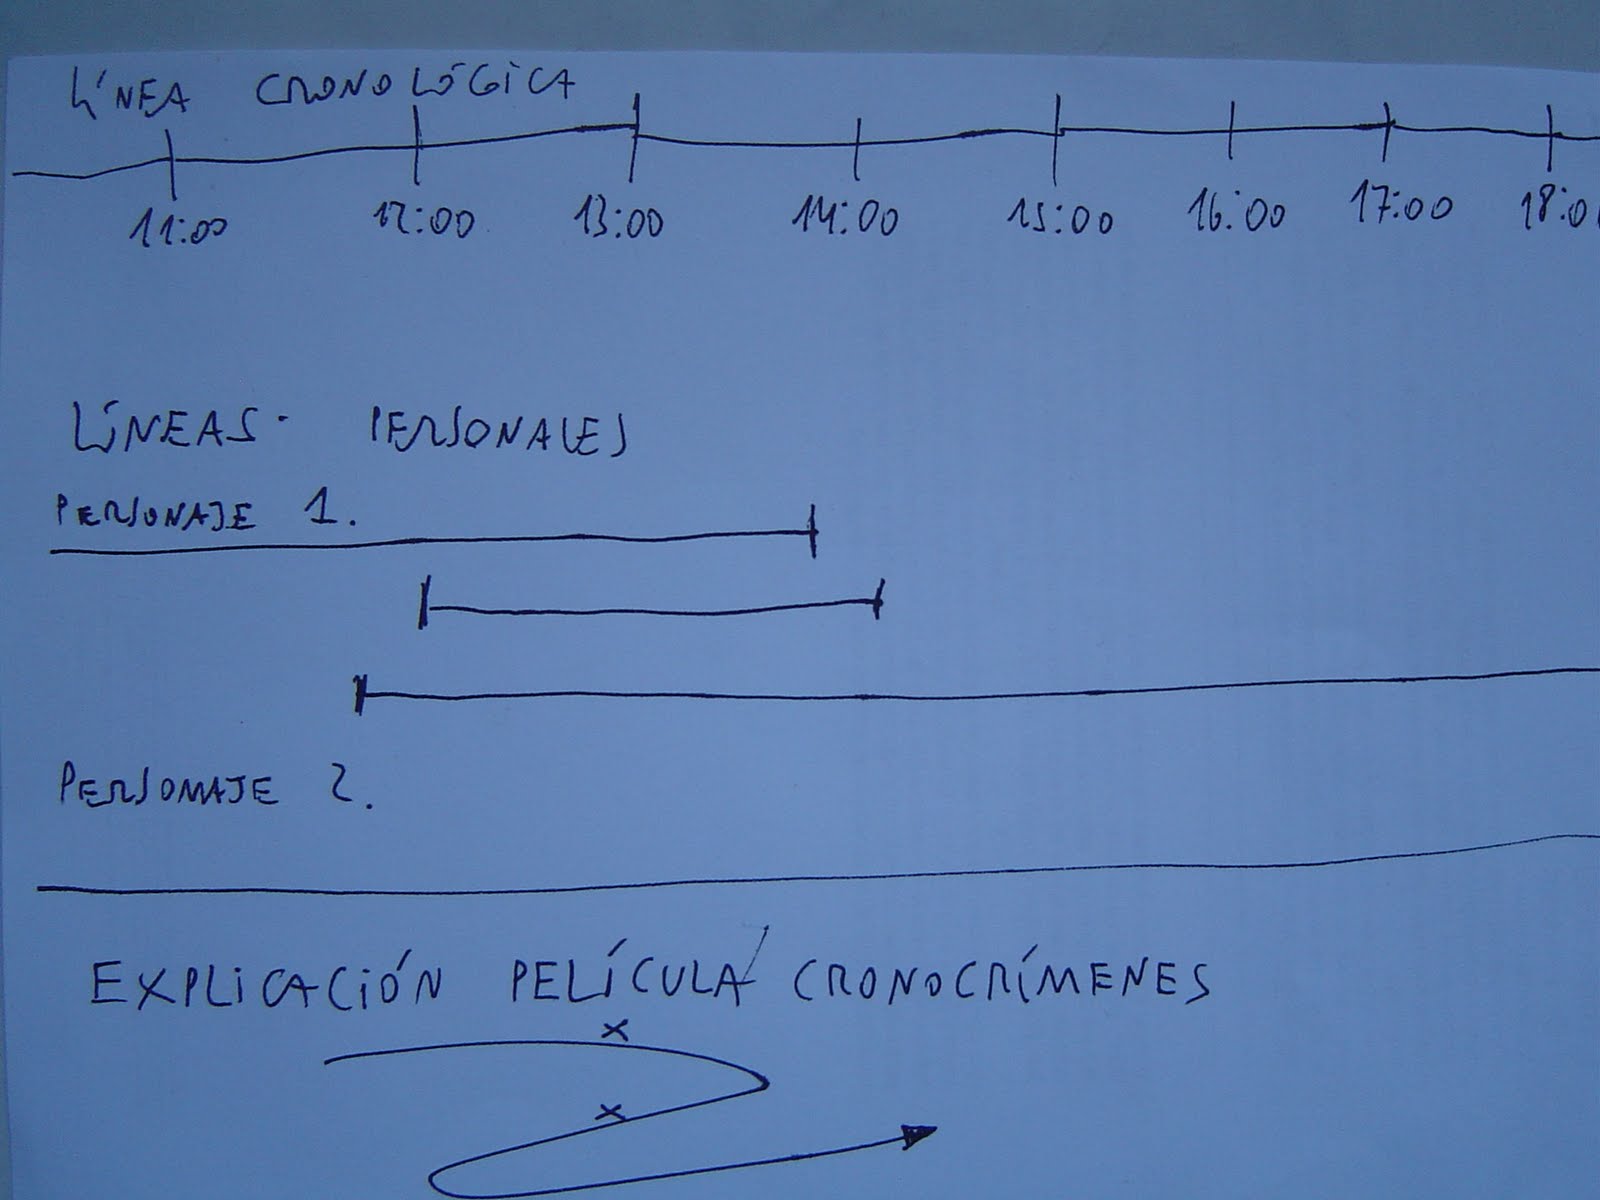 LÍNEA CRONOLÓGICA
11:00 12:00 13:00 14:00 15:00 16:00 17:00 18:0
LÍNEAS PERSONALES
PERSONAJE 1.
PERSONAJE 2.
EXPLICACIÓN PELÍCULA CRONOCRÍMENES
x
x